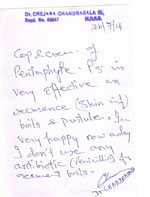 Dr. CREJARA CHANDRAKALA
Regd. No.
M.B.B.S.
26/7/14
Cap & cream of
Pentaphyte - P5 is
very effective on
recurrence (Skin inf)
boils & pustule. I'm
very happy now a day
I don't use any
antibiotic (Penicillin) for
recurrent boils -